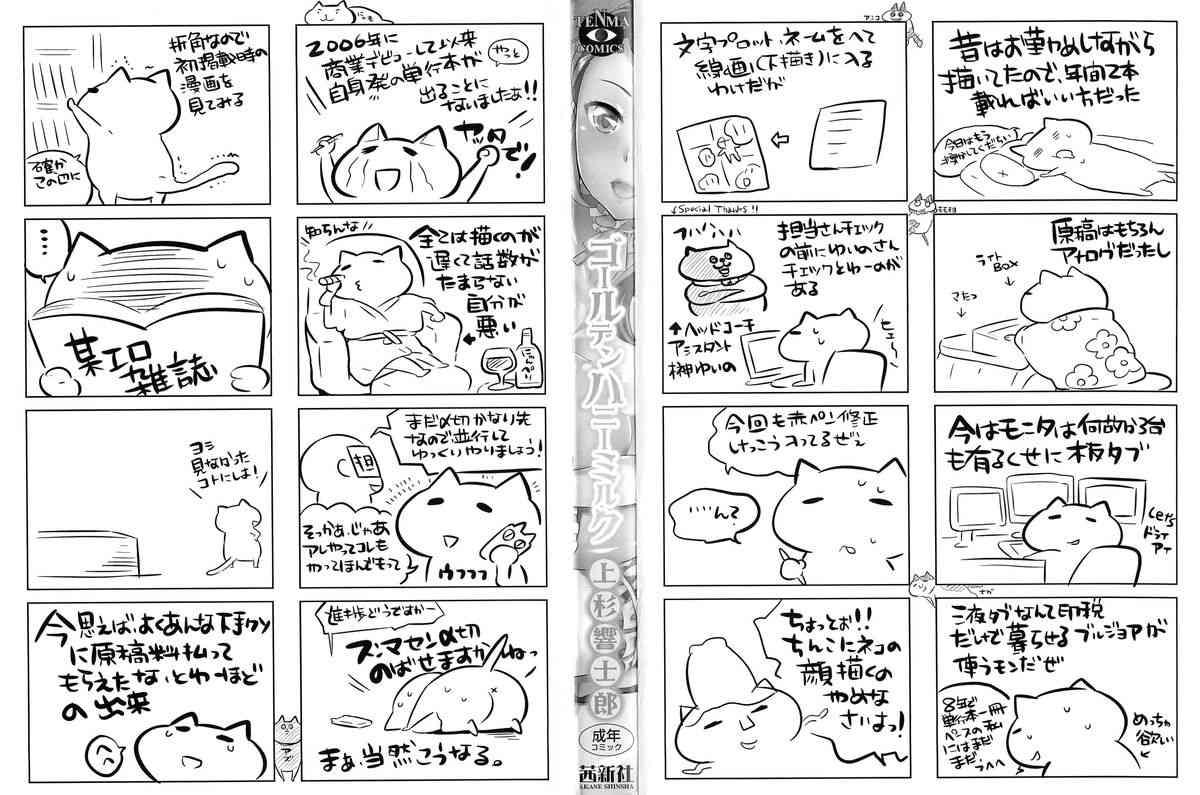 昔はお勤めしながら
描いてたので、年間で2本
載ればいい方だった
今日はもう
原稿はもちろん
アナログだったし
ライト
BOX
今はモニタは何故か3台
も有るくせに板タブ
液タブなんて印税
だけで暮らせるブルジョアが
使うモンだぜ
8年で
単行本一冊
ペースの私
にはまだ
まだ
めっちゃ
欲しい
アニコ
文字プロット、ネームをへて
線画(下描き)に入る
わけだが
↓Special Thanks!!
担当さんチェック
の前にゆいのさん
チェックとゆーのが
ある
↑ヘッドコーチ
アシスタント
榊ゆいの
ヒェ〜
今回も赤ペン修正
けっこう入ってるぜぇ
……んで?
ちょっとぉ!!
ちんこにネコの
顔描くの
やめな
さいよっ!
TENMA
COMICS
ゴールデンハニーミルク
上杉響士郎
成年
コミック
茜新社
AKANE SHINSHA
2006年に
商業デビューして以来
やっと
自身発の単行本が
出ることに
なりましたぁ!!
ヤッタ
で!
知らんな
全ては描くのが
遅くて話数が
たまらない
自分が
悪い
まだ〆切かなり先
なので並行して
ゆっくりやりましょう!
担
そっかぁ、じゃあ
アレやってコレも
やってほんでもって
ウフフフ
進捗どうですかー
スンマセン〆切
のばせますかねっ
まぁ、当然こうなる。
折角なので
初掲載時の
漫画を
見てみる
確か
この辺に
…
某エロ
雑誌
ヨシ
見なかった
コトにしよ!
今思えば、よくあんな下手クソ
に原稿料払って
もらえたな、とゆーほど
の出来
へへ